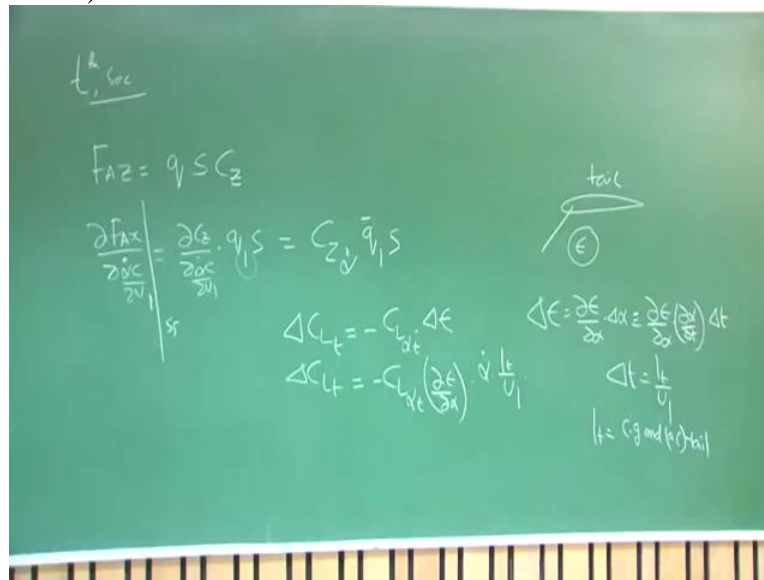 t, sec
F_AZ = q S C_Z
∂F_AX / ∂(α̇c/2U₁) |_SS = ∂C_Z / ∂(α̇c/2U₁) · q₁S = C_Zα̇ q̄₁ S
tail
ϵ
ΔC_Lt = -C_Lαt · Δϵ
ΔC_Lt = -C_Lαt (∂ϵ/∂α) · α̇ l_t/U₁
Δϵ = ∂ϵ/∂α · Δα = ∂ϵ/∂α (∂α/∂t) Δt
Δt = l_t/U₁
l_t = C.g and (ac)-tail